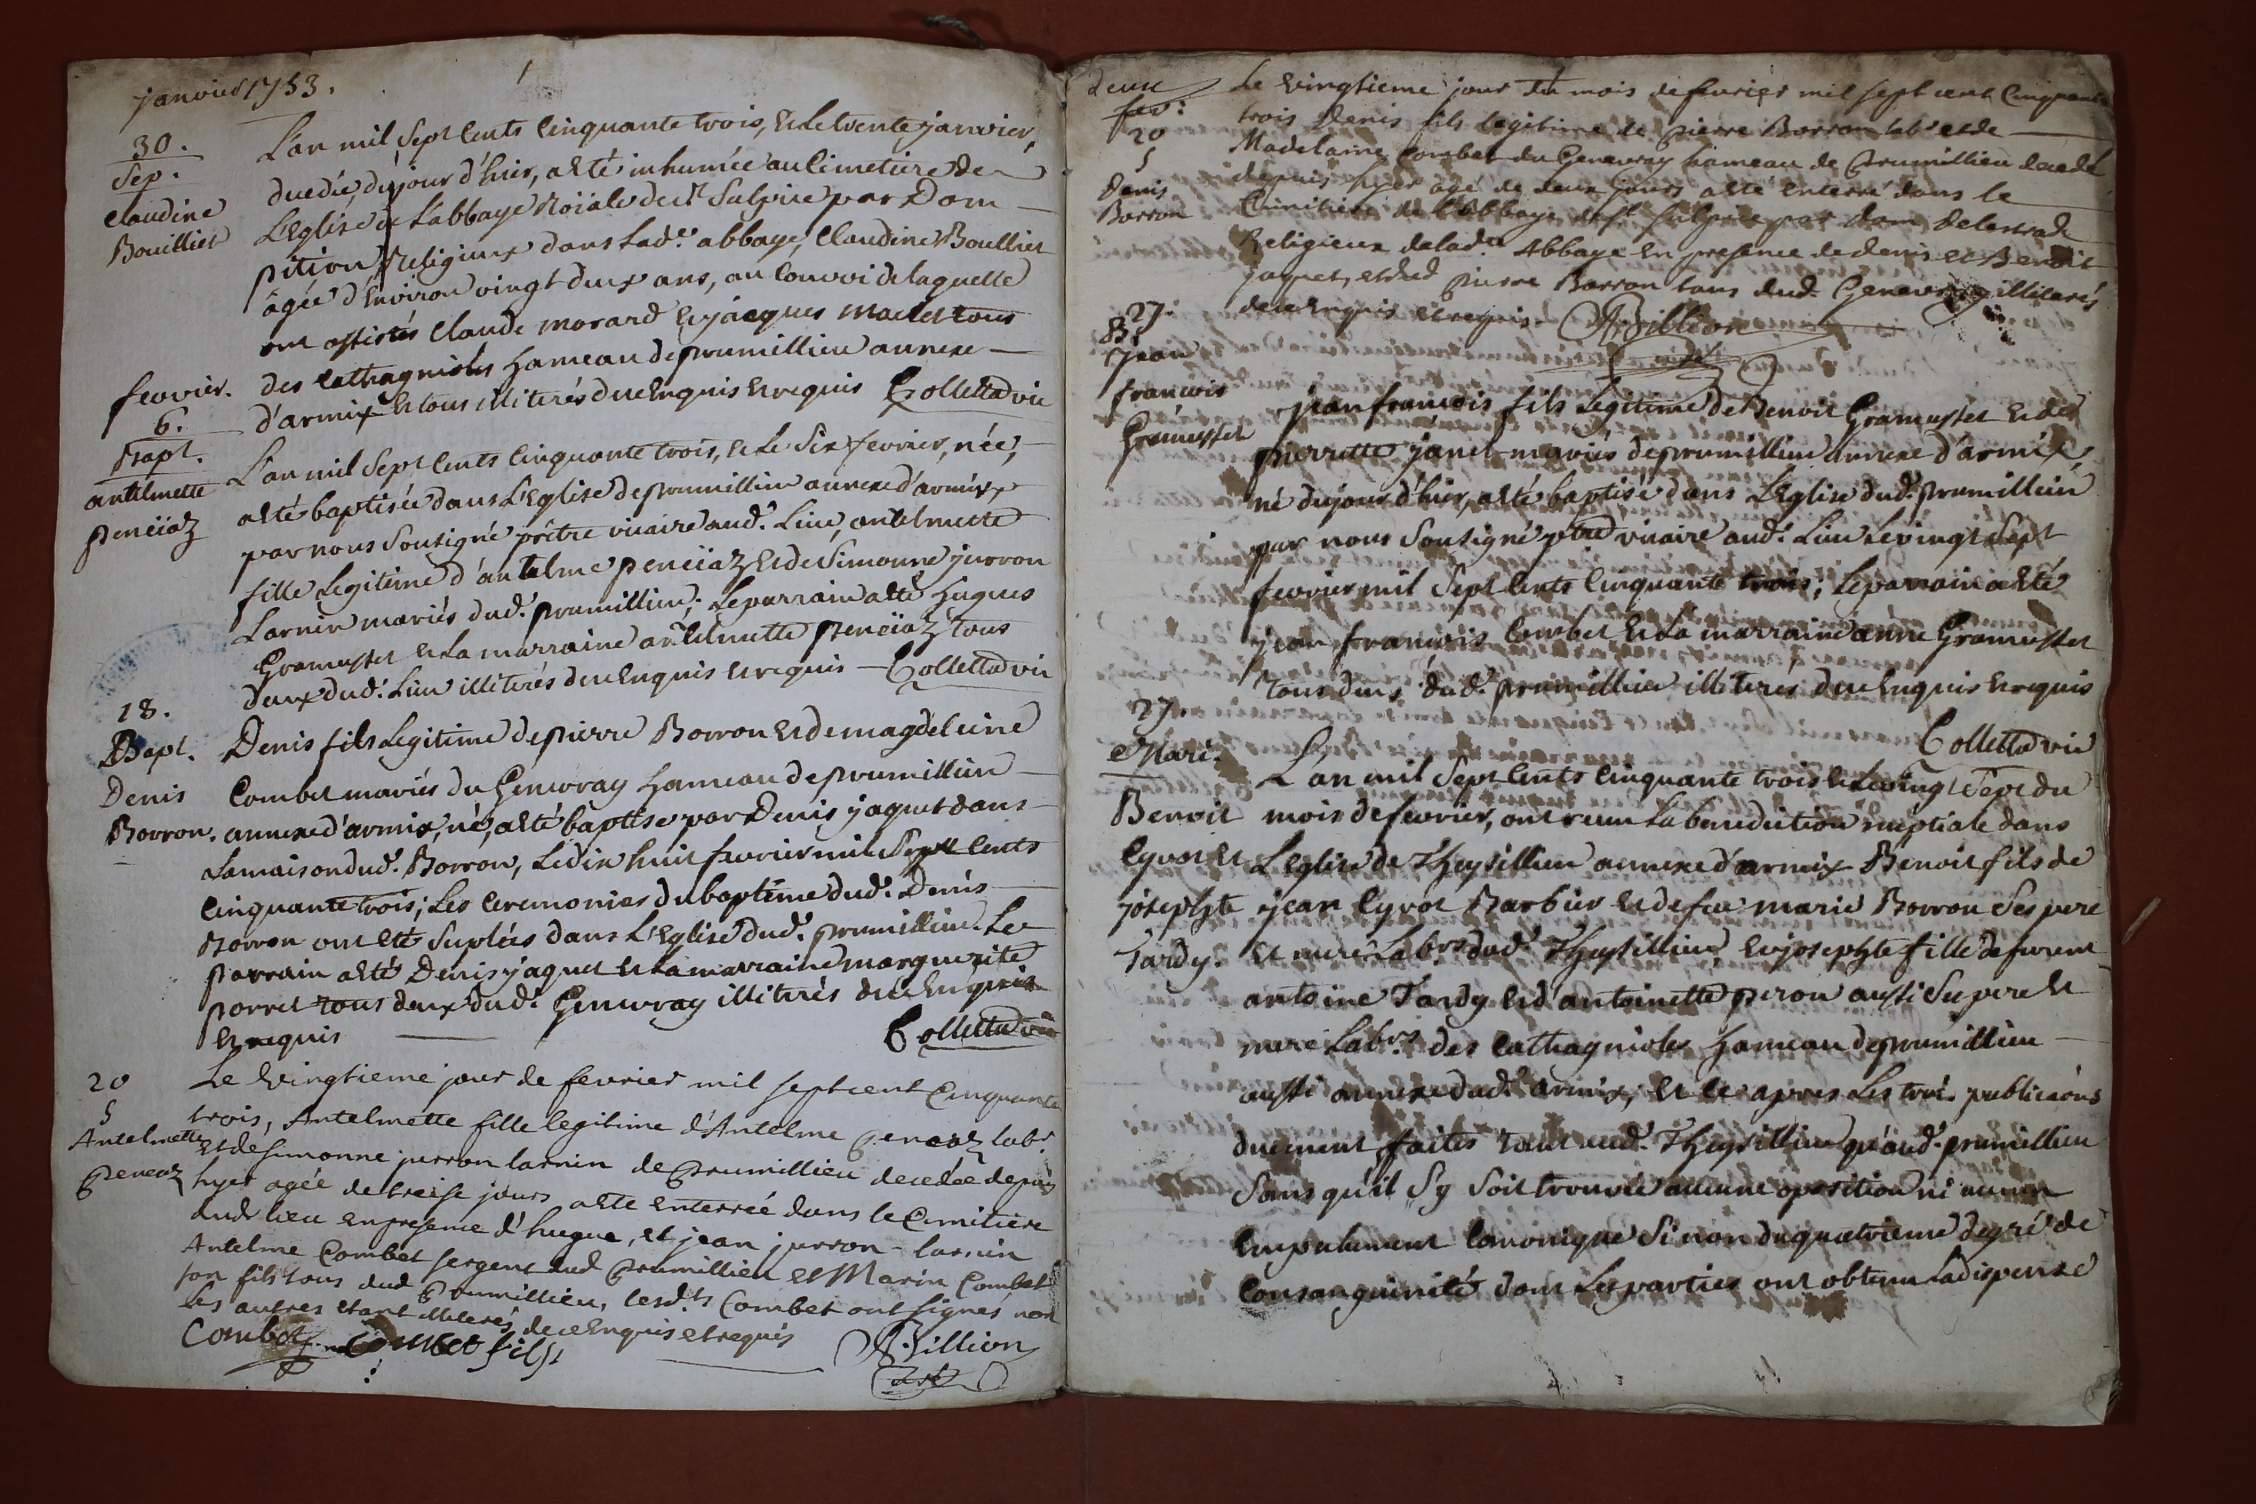 janvier 1753.
1
30.
Sep.
Claudine
Bouillier
L'an mil Sept Cents Cinquante trois, et Le trente janvier,
ducdée, du jour d'hier, a eté inhumée au Cimetiere de
L'Eglise de L'abbaye Roïale de st Sulpice par Dom
pition Religieux dans Lad.e abbaye, Claudine Boullier
âgée d'Environ vingt deux ans, au Convoi de laquelle
ont assistés Claude morard et jacques maclet tous
des Cathagnioles hameau de prumillieu annexe
d'armix et tous illiterés de ce Enquis et requis Colletta vic
fevrier.
6.
Bapt.
antelmette
peneïaz
L'an mil Sept Cents Cinquante trois, et Le Six fevrier, née,
a eté baptisée dans L'Eglise de prumillieu annexe d'armix
par nous Sousigné prêtre vicaire aud.t Lieu, antelmette
fille Legitime d'antelme peneïaz et de Simonne jurron
Larnin mariés dud.t prumillieu; Le parrain a eté hugues
Gramusset et La marraine antelmette peneïaz tous
deux dud.t Lieu illiterés de ce Enquis et requis Colletta vic
18.
Bapt.
Denis
Borron.
Denis fils Legitime de pierre Borron et de magdeleine
Combet mariés du Genevray hameau de prumillieu
annexe d'armix, né, a eté baptise par Denis jaquet dans
La maison dud.t Borron, Le dix huit fevrier mil Sept Cents
Cinquante trois; Les Ceremonies du baptême dud.t Denis
Borron ont eté Supleés dans L'Eglise dud.t prumillieu. Le
parrain a eté Denis jaquet et La marraine marguerite
porret tous deux dud.t Genevray illiterés de ce Enquis
et requis Colletta vic
20
S
Antelmette
Peneaz
Le vingtieme jour de fevrier mil sept cent Cinquante
trois, Antelmette fille legitime d'Antelme Peneaz lab.r
et de Simonne jurron larnin de Prumillieu decedée depuis
hyer agée de treise jours a ete enterrée dans le Cimitiere
dud lieu en presence d'hugue, et jean jurron-larnin
Antelme Combet sergent dud Prumillieu et Marin Combet
son fils tous dud Prumillieu, lesd.ts Combet ont signes non
les autres etant illiterés de ce Enquis et requis
Combet Combet fils A. Villion
deux
fev:
20
S
Denis
Borron
Le vingtieme jour du mois de fevrier mil sept cent Cinquante
trois Denis fils legitime de Pierre Borron lab.r et de
Madelaine Combet du Genevray hameau de Prumillieu decedé
depuis hyer agé de deux jours a eté enterré dans le
Cimitiere de l'Abbaye de st sulpice par dom Delestrade
Religieux de lad.te Abbaye en presence de denis et Benoit
jaquet, et dud Pierre Borron tous dud. Genevray illiterés
de ce enquis et requis. A. Villion
27.
B.
Jean
francois
Gramusset
jean francois fils Legitime de Benoit Gramusset et de
pierrette janet mariés de prumillieu annexe d'armix,
né du jour d'hier, a eté baptisé dans L'Eglise dud.t prumillieu
par nous Sousigné ptre vicaire aud.t Lieu Le vingt Sept
fevrier mil Sept Cents Cinquante trois; Le parrain a eté
jean francois Combet et La marraine anne Gramusset
tous deux dud.t prumillieu illiterés de ce Enquis et requis
Colletta vic
27.
Mari.
Benoit
Cyvot et
josephte
Tardy.
L'an mil Sept Cents Cinquante trois et Le vingt Sept du
mois de fevrier, ont reçu La benediction nuptiale dans
L'Eglise de Theysillieu annexe d'armix Benoit fils de
jean Cyvot Barbier et de feu marie Borron Ses pere
et mere Lab.rs dud.t Theysillieu, et josephte fille de furent
antoine Tardy et d'antoinette peron aussi Se pere et
mere Lab.rs des Cathagnioles hameau de prumillieu
aussi annexe dud.t armix, et ce apres Les trois publicaõns
duement faites tant aud.t Theysillieu qu'aud.t prumillieu
Sans qu'il S'y Soit trouvée aucune oposition ni aucun
Empechement Canonique Si non du quatrieme degré de
Consanguinité dont Les parties ont obtenu La dispense